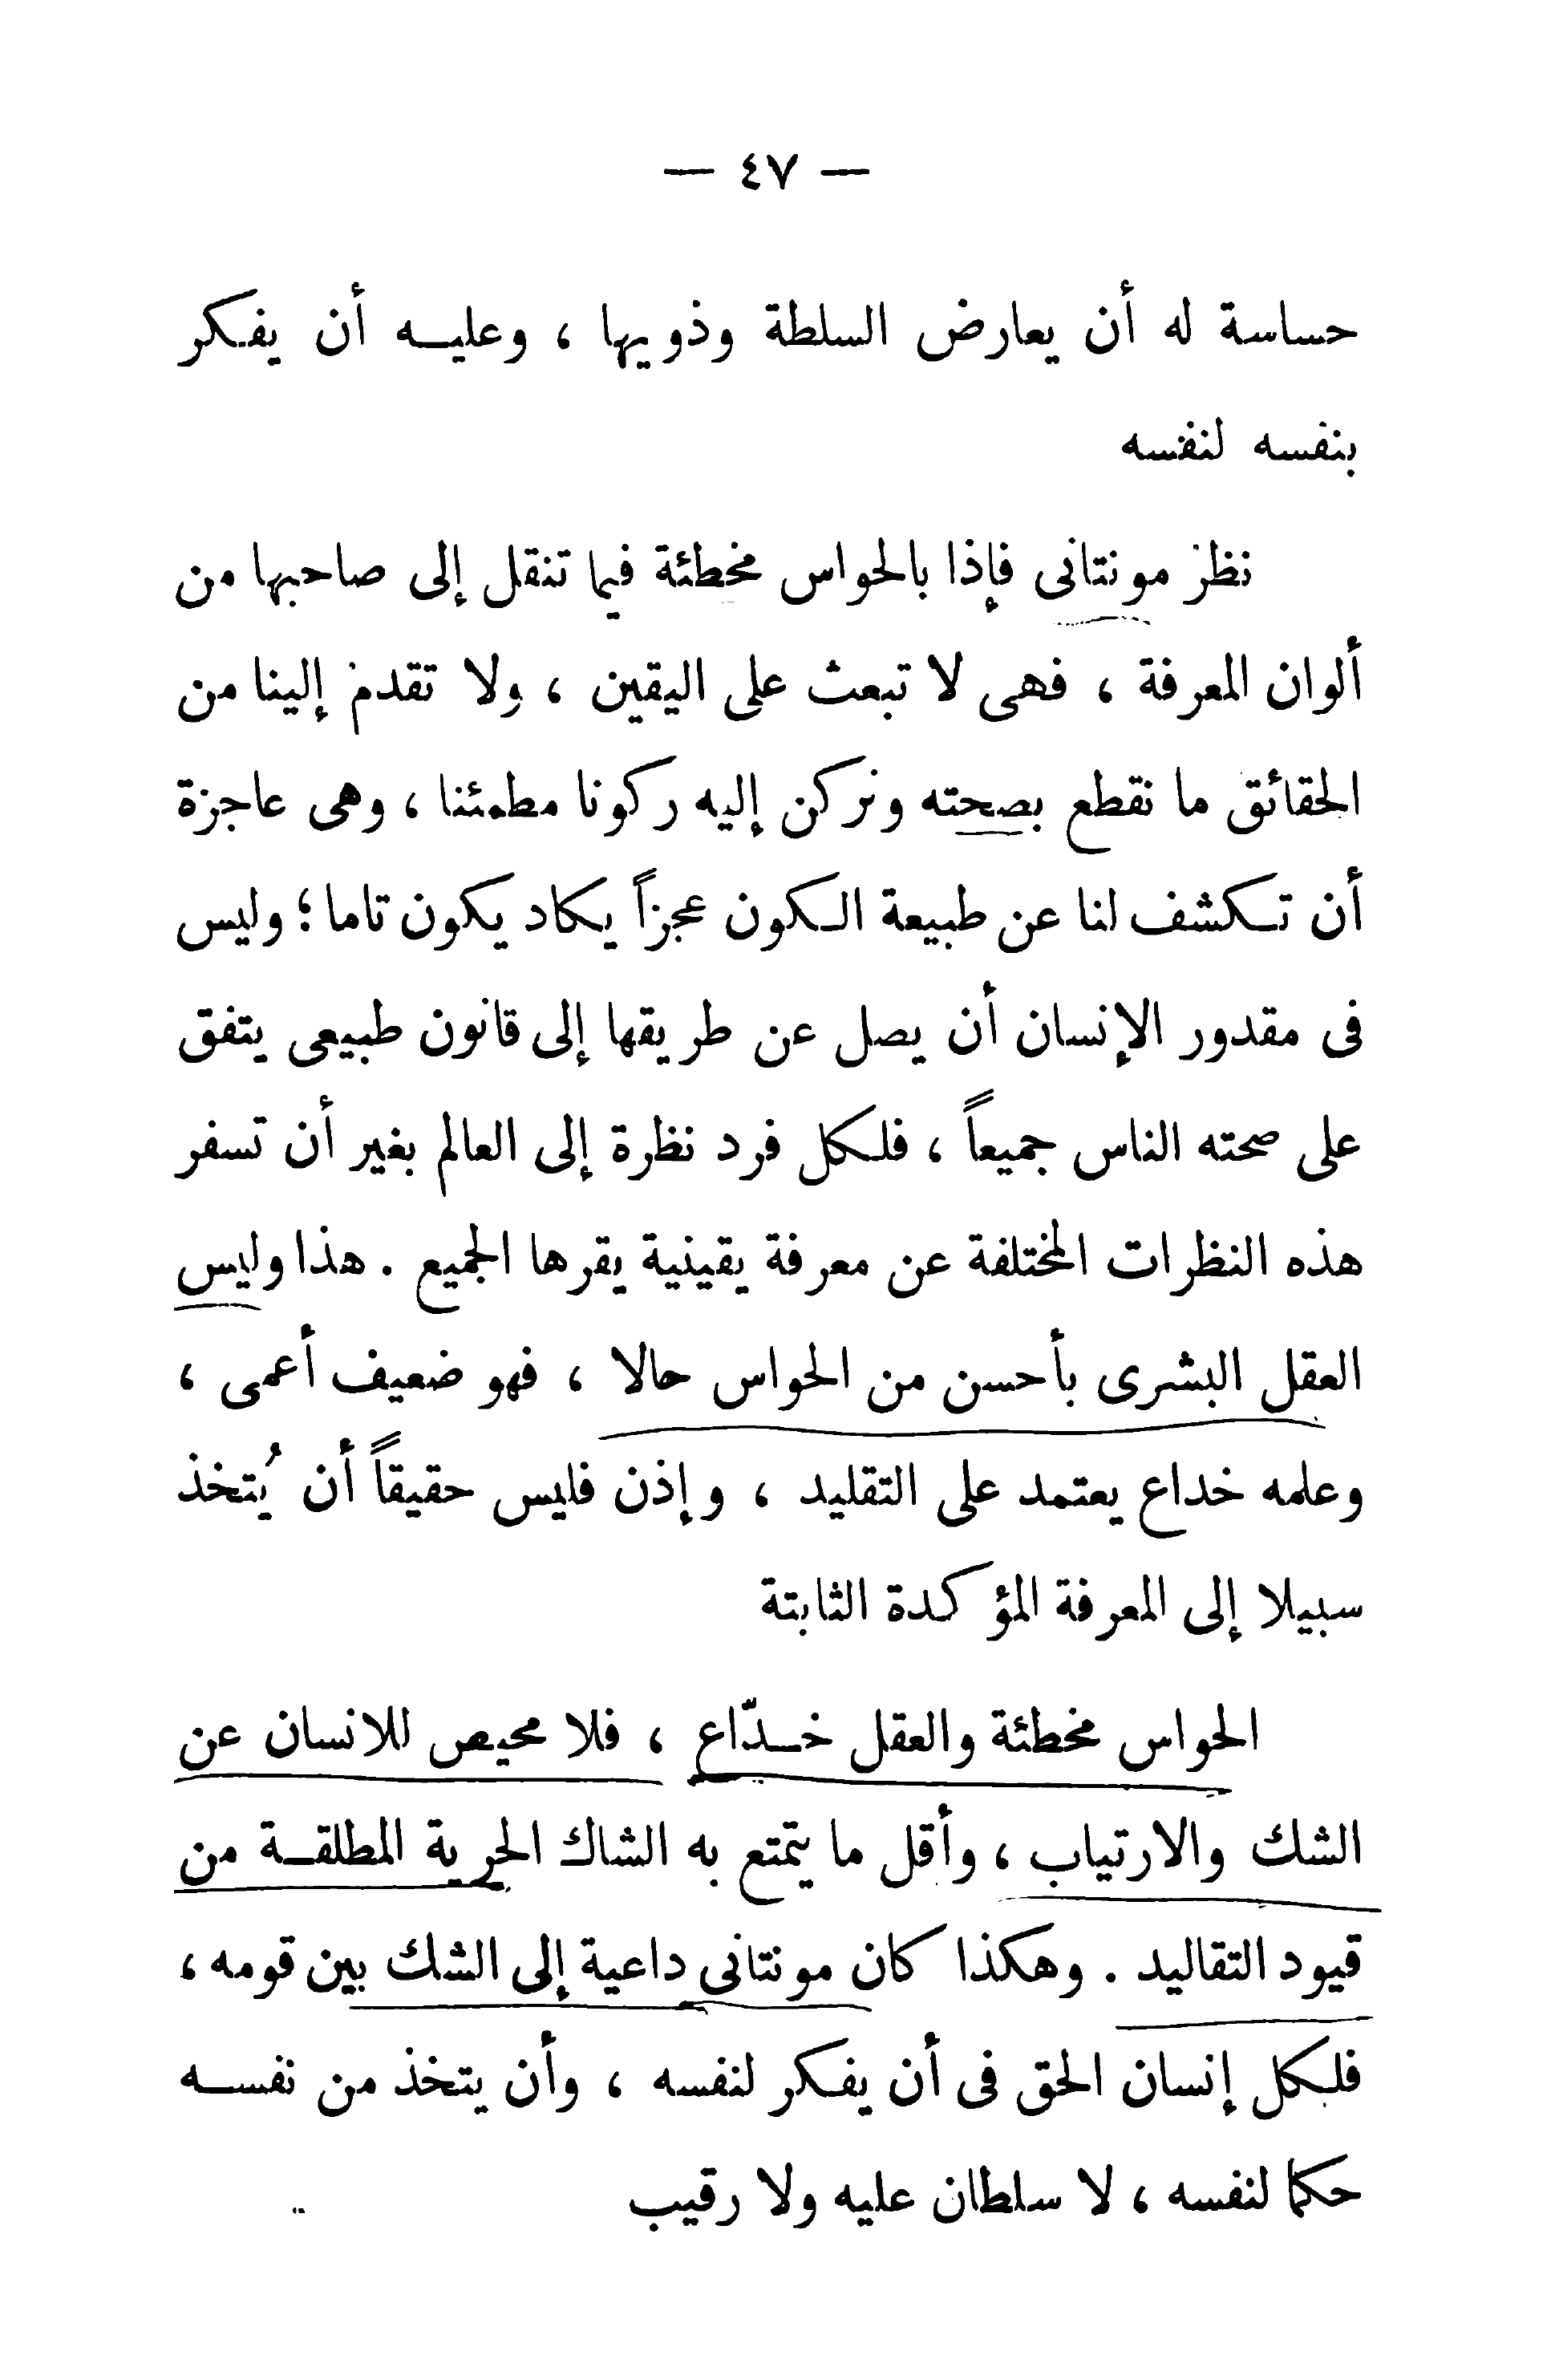 — ٤٧ —
حساسة له أن يعارض السلطة وذويها ، وعليه أن يفكر
بنفسه لنفسه
نظر مونتانى فإذا بالحواس مخطئة فيما تنقل إلى صاحبها من
ألوان المعرفة ، فهى لا تبعث على اليقين ، ولا تقدم إلينا من
الحقائق ما نقطع بصحته ونركن إليه ركونا مطمئنا ، وهى عاجزة
أن تكشف لنا عن طبيعة الكون عجزاً يكاد يكون تاما ؛ وليس
فى مقدور الإنسان أن يصل عن طريقها إلى قانون طبيعى يتفق
على صحته الناس جميعاً ، فلكل فرد نظرة إلى العالم بغير أن تسفر
هذه النظرات المختلفة عن معرفة يقينية يقرها الجميع . هذا وليس
العقل البشرى بأحسن من الحواس حالا ، فهو ضعيف أعمى ،
وعلمه خداع يعتمد على التقليد ، وإذن فليس حقيقاً أن يُتخذ
سبيلا إلى المعرفة المؤكدة الثابتة
الحواس مخطئة والعقل خدّاع ، فلا محيص للانسان عن
الشك والارتياب ، وأقل ما يتمتع به الشاك الحرية المطلقة من
قيود التقاليد . وهكذا كان مونتانى داعية إلى الشك بين قومه ،
فلكل إنسان الحق فى أن يفكر لنفسه ، وأن يتخذ من نفسه
حكما لنفسه ، لا سلطان عليه ولا رقيب